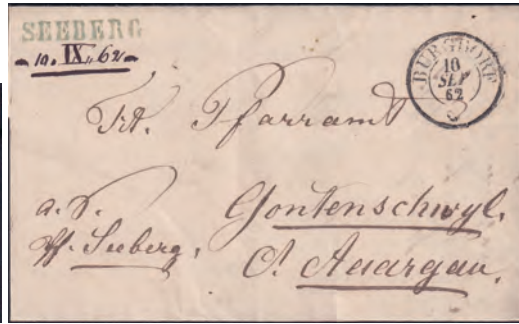 SEEBERG
10. IX. 62
BURGDORF
10
SEP
62
Tit. Pfarramt
a. S.
Pf. Seeberg.
Gontenschwyl.
Ct. Aaargau.